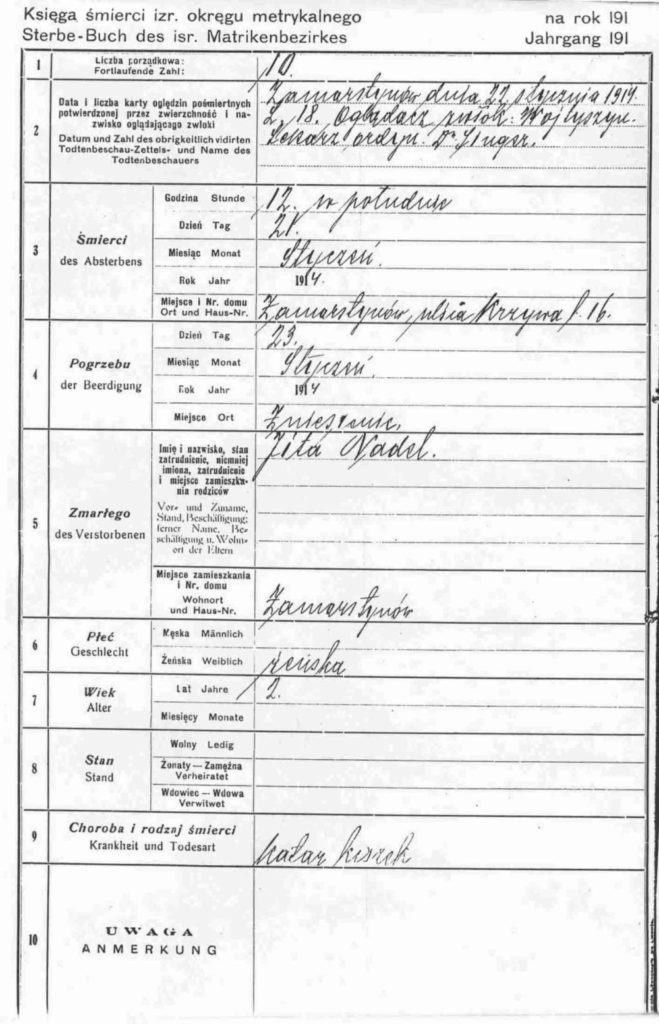 Księga śmierci izr. okręgu metrykalnego na rok 191
Sterbe-Buch des isr. Matrikenbezirkes Jahrgang 191
1 Liczba porządkowa: 10.
Fortlaufende Zahl:
2 Data i liczba karty oględzin pośmiertnych potwierdzonej przez zwierzchność i nazwisko oglądającego zwłoki
Zamarstynów dnia 22 stycznia 1914
L. 18. Oglądacz zwłok: Wojtyszyn.
Lekarz ordyn. Dr Singer.
Datum und Zahl des obrigkeitlich vidirten
Todtenbeschau-Zettels- und Name des
Todtenbeschauers
3 Śmierci
des Absterbens
Godzina Stunde 12. w południe
Dzień Tag 21.
Miesiąc Monat Styczeń.
Rok Jahr 1914.
Miejsce i Nr. domu
Ort und Haus-Nr. Zamarstynów, ulica Krzywa l. 16.
4 Pogrzebu
der Beerdigung
Dzień Tag 23.
Miesiąc Monat Styczeń.
Rok Jahr 1914
Miejsce Ort Zniesienie.
5 Zmarłego
des Verstorbenen
Imię i nazwisko, stan
zatrudnienie, niemniej
imiona, zatrudnienie
i miejsce zamieszka-
nia rodziców
Nadel.
Vor- und Zuname,
Stand, Beschäftigung;
ferner Name, Be-
schäftigung u. Wohn-
ort der Eltern
Miejsce zamieszkania
i Nr. domu
Wohnort
und Haus-Nr. Zamarstynów
6 Płeć
Geschlecht
Męska Männlich
Żeńska Weiblich żeńska
7 Wiek
Alter
Lat Jahre 2.
Miesięcy Monate
8 Stan
Stand
Wolny Ledig
Żonaty — Zamężna
Verheiratet
Wdowiec — Wdowa
Verwitwet
9 Choroba i rodzaj śmierci
Krankheit und Todesart
Katar kiszek
10 UWAGA
ANMERKUNG